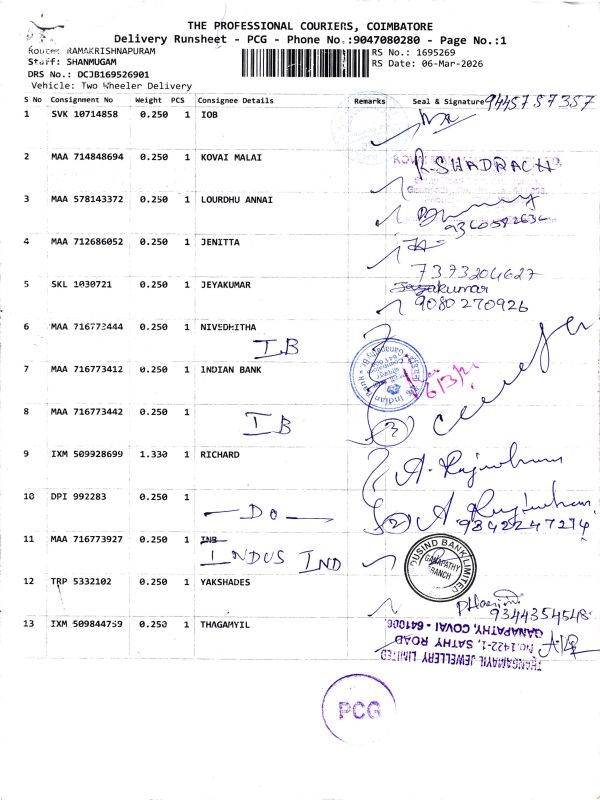 THE PROFESSIONAL COURIERS, COIMBATORE
Delivery Runsheet - PCG - Phone No.:9047080280 - Page No.:1
Route: RAMAKRISHNAPURAM
RS No.: 1695269
Staff: SHANMUGAM
RS Date: 06-Mar-2026
DRS No.: DCJB169526901
Vehicle: Two Wheeler Delivery
S No Consignment No Weight PCS Consignee Details Remarks Seal & Signature 9445757357
1 SVK 10714858 0.250 1 IOB
2 MAA 714848694 0.250 1 KOVAI MALAI
R. SHADRACH
3 MAA 578143372 0.250 1 LOURDHU ANNAI
4 MAA 712686052 0.250 1 JENITTA
7373204627
5 SKL 1030721 0.250 1 JEYAKUMAR
Jayakumar
9080270926
6 MAA 716773444 0.250 1 NIVEDHITHA
IB
7 MAA 716773412 0.250 1 INDIAN BANK
8 MAA 716773442 0.250 1
IB
3
9 IXM 509928699 1.330 1 RICHARD
10 DPI 992283 0.250 1
— DO —
2
9842247274
11 MAA 716773927 0.250 1 INB
INDUS IND
INDUSIND BANK LIMITED
GANAPATHY BRANCH
12 TRP 5332102 0.250 1 YAKSHADES
9344354548
13 IXM 509844759 0.250 1 THAGAMYIL
THANGAMAYIL JEWELLERY LIMITED
No.1422-1, SATHY ROAD
GANAPATHY, COVAI - 641006.
PCG